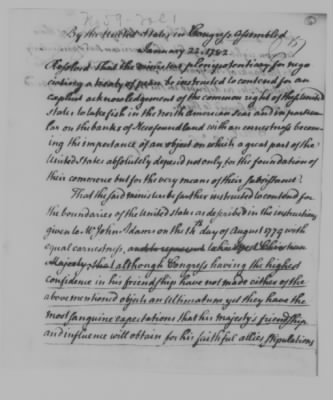 By the United States in Congress Assembled
January 22. 1782
Resolved That the ministers plenipotentiary for nego
ciating a treaty of peace be instructed to contend for an
explicit acknowledgement of the common right of these United
States to take fish in the north American Seas and in particu
lar on the banks of Newfoundland with an earnestness becom
ing the importance of an object on which a great part of these
United States absolutely depend not only for the foundation of
their commerce but for the very means of their subsistance.
That the said ministers be further instructed to contend for
the boundaries of the United States as described in the instructions
given to Mr John Adams on the th day of August 1779 with
equal earnestness, and to represent to his Most Christian
Majesty, that although Congress having the highest
confidence in his friendship have not made either of the
above mentioned objects an Ultimatum yet they have the
most sanguine expectations that his majesty's friendship
and influence will obtain for his faithful allies stipulations